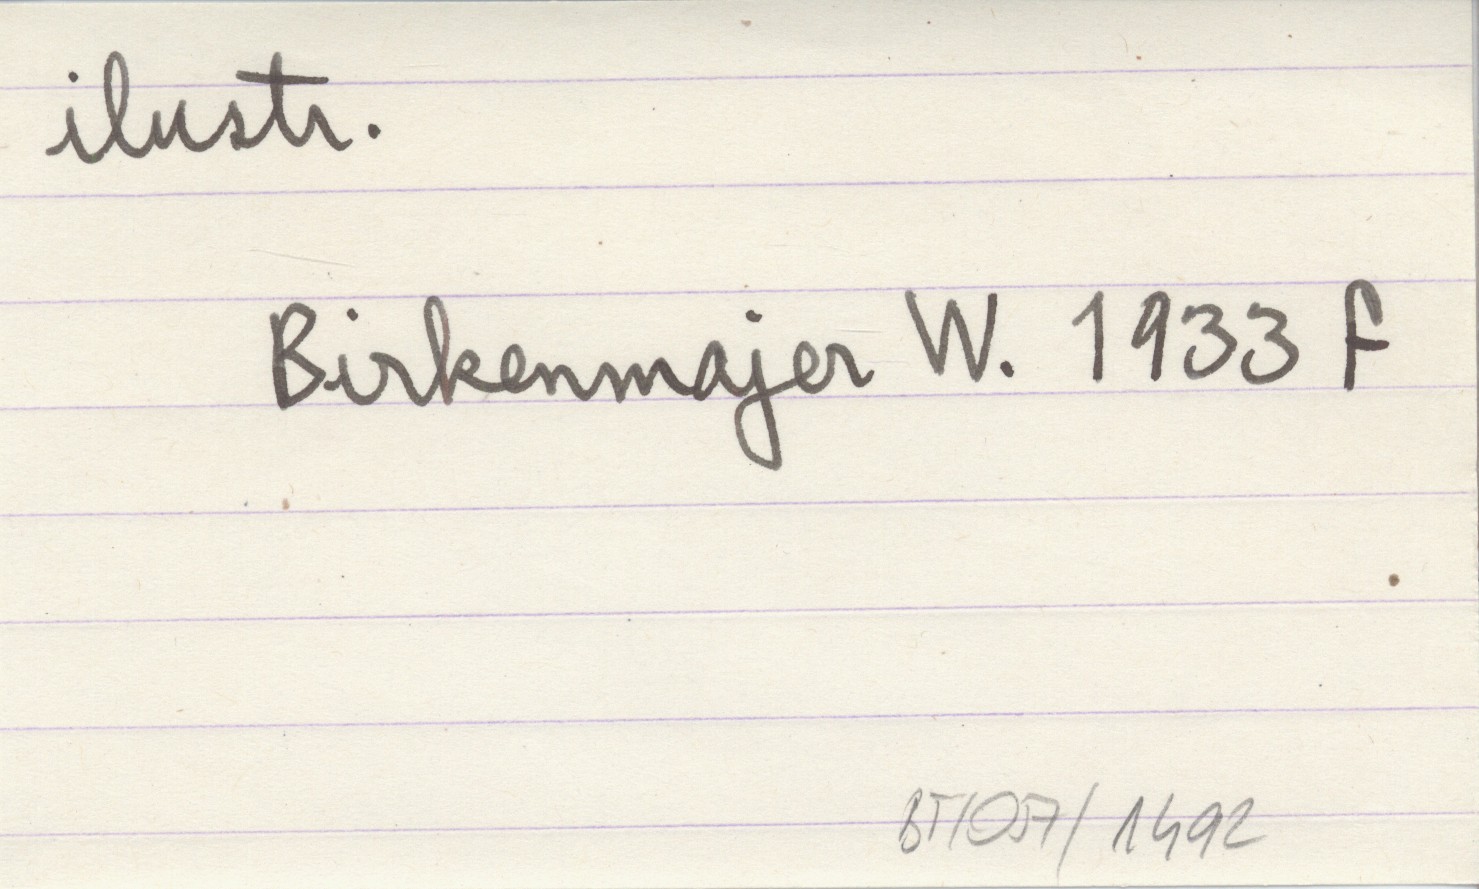 ilustr.
Birkenmajer W. 1933 f
BT/057/1492